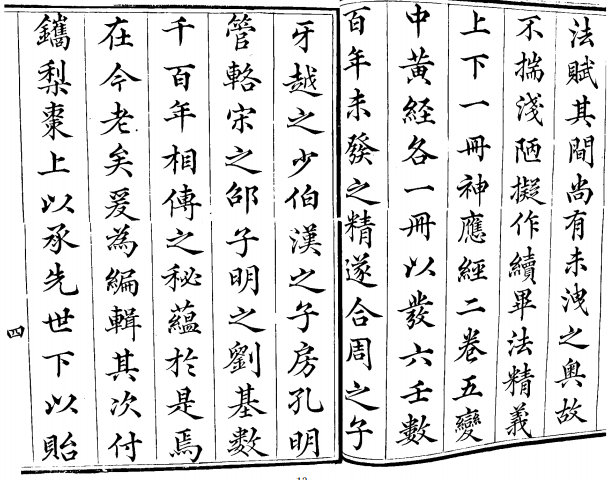 法賦其間尚有未洩之奥故
不揣淺陋擬作續畢法精義
上下一冊神應經二卷五變
中黃經各一冊以發六壬數
百年未發之精邃合周之子
牙越之少伯漢之子房孔明
管輅宋之邵子明之劉基數
千百年相傳之秘蘊於是焉
在今老矣爰為編輯其次付
鐫梨棗上以承先世下以貽
四